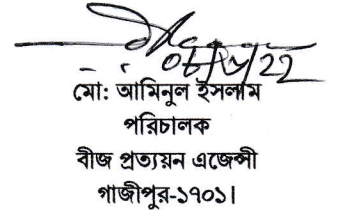 মো: আমিনুল ইসলাম
পরিচালক
বীজ প্রত্যয়ন এজেন্সী
গাজীপুর-১৭০১।